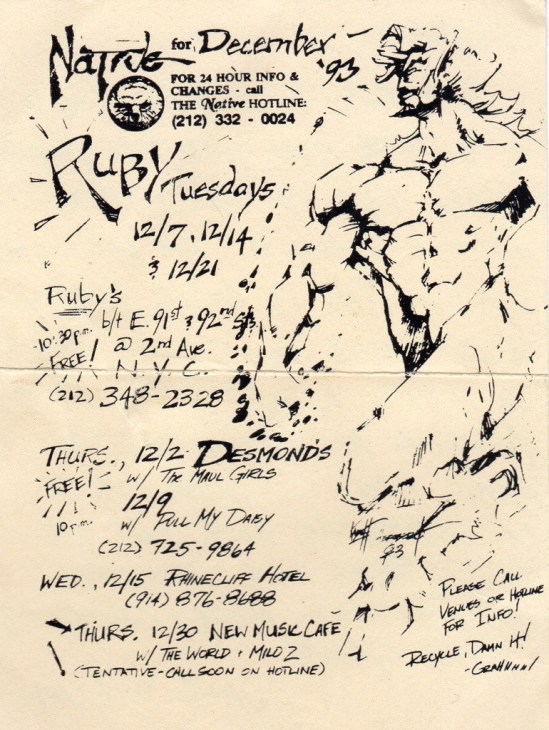 Native for December '93
FOR 24 HOUR INFO &
CHANGES - call
THE Native HOTLINE:
(212) 332 - 0024
RUBY Tuesdays
12/7, 12/14
& 12/21
Ruby's
b/t E. 91st & 92nd Sts
10:30 p.m. @ 2nd Ave.
FREE! N.Y.C.
(212) 348-2328
THURS., 12/2 DESMONDS
FREE! w/ The MAUL GIRLS
12/9
10 p.m. w/ PULL MY DAISY
(212) 725-9864
WED., 12/15 RHINECLIFF HOTEL
(914) 876-8688
THURS. 12/30 NEW MUSIC CAFÉ
w/ THE WORLD + MILO Z
(TENTATIVE-CALL SOON ON HOTLINE)
93
PLEASE CALL
VENUES OR HOTLINE
FOR INFO!
RECYCLE, DAMN IT!